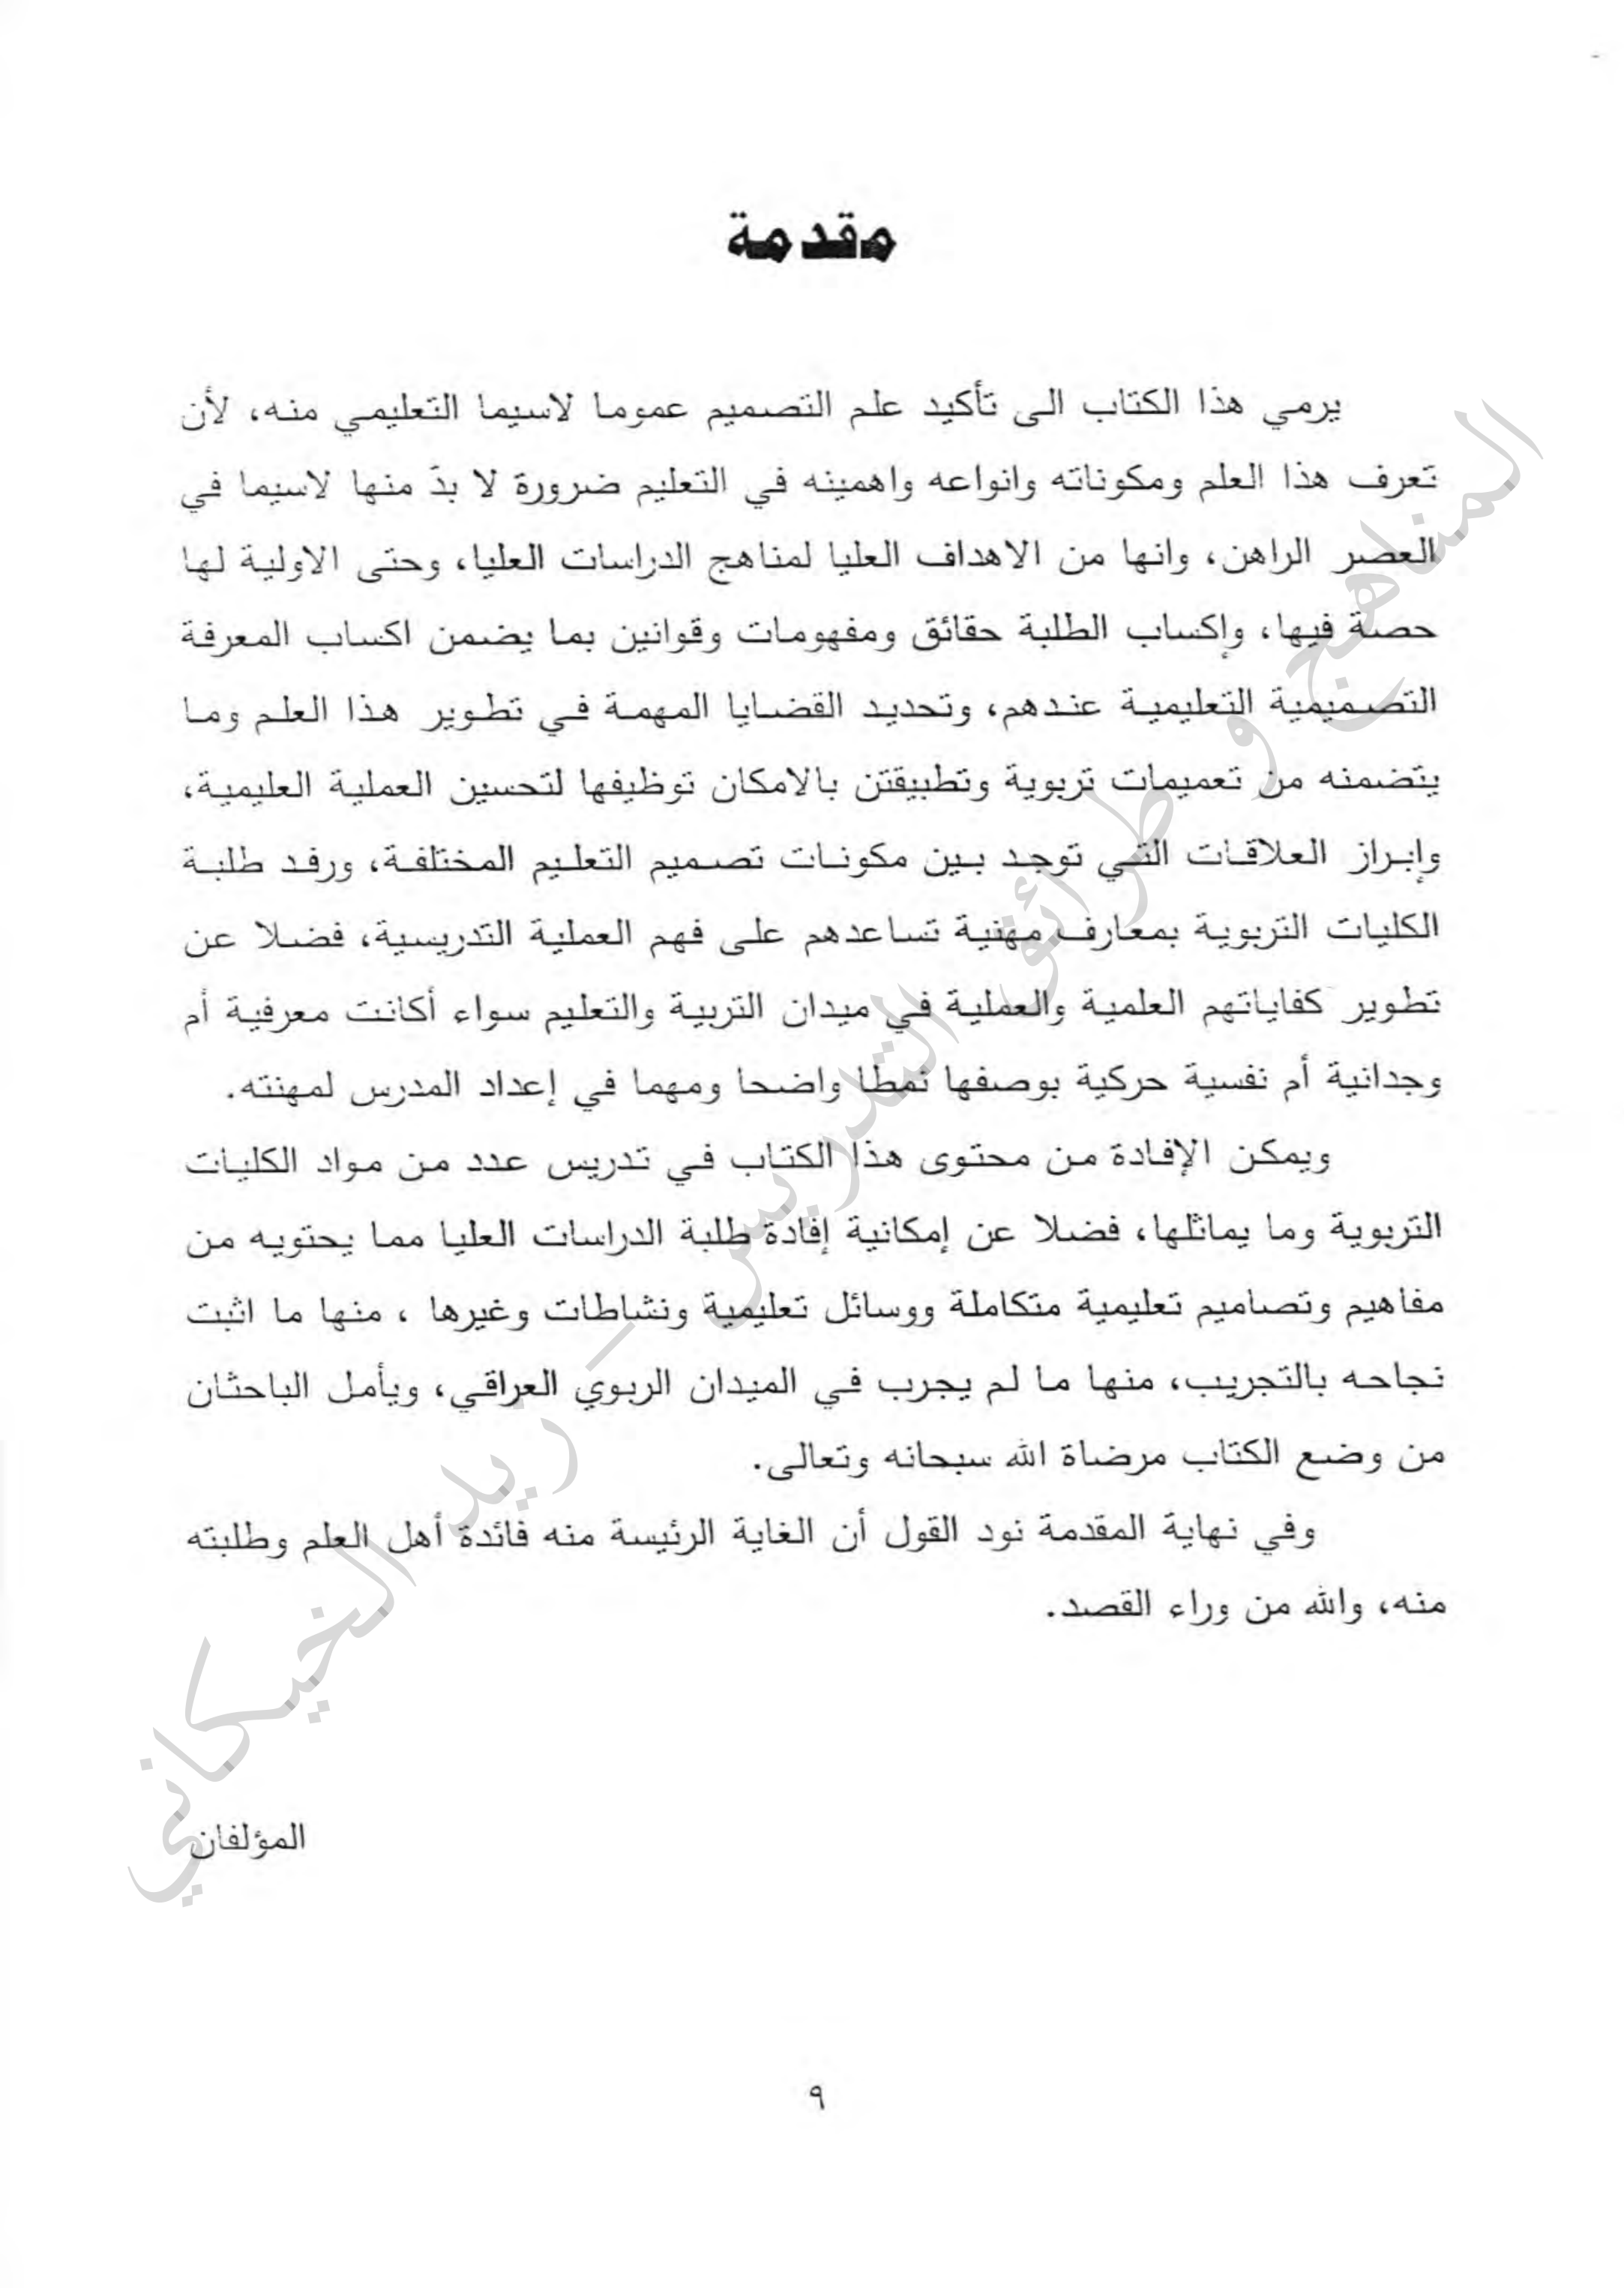 مقدمة
يرمي هذا الكتاب الى تأكيد علم التصميم عموما لاسيما التعليمي منه، لأن
تعرف هذا العلم ومكوناته وانواعه واهمينه في التعليم ضرورة لا بدّ منها لاسيما في
العصر الراهن، وانها من الاهداف العليا لمناهج الدراسات العليا، وحتى الاولية لها
حصة فيها، وإكساب الطلبة حقائق ومفهومات وقوانين بما يضمن اكساب المعرفة
التصميمية التعليمية عندهم، وتحديد القضايا المهمة في تطوير هذا العلم وما
يتضمنه من تعميمات تربوية وتطبيقتن بالامكان توظيفها لتحسين العملية العليمية،
وإبراز العلاقات التي توجد بين مكونات تصميم التعليم المختلفة، ورفد طلبة
الكليات التربوية بمعارف مهنية تساعدهم على فهم العملية التدريسية، فضلا عن
تطوير كفاياتهم العلمية والعملية في ميدان التربية والتعليم سواء أكانت معرفية أم
وجدانية أم نفسية حركية بوصفها نمطا واضحا ومهما في إعداد المدرس لمهنته.
ويمكن الإفادة من محتوى هذا الكتاب في تدريس عدد من مواد الكليات
التربوية وما يماثلها، فضلا عن إمكانية إفادة طلبة الدراسات العليا مما يحتويه من
مفاهيم وتصاميم تعليمية متكاملة ووسائل تعليمية ونشاطات وغيرها ، منها ما اثبت
نجاحه بالتجريب، منها ما لم يجرب في الميدان الربوي العراقي، ويأمل الباحثان
من وضع الكتاب مرضاة الله سبحانه وتعالى.
وفي نهاية المقدمة نود القول أن الغاية الرئيسة منه فائدة أهل العلم وطلبته
منه، والله من وراء القصد.
المؤلفان
٩
المناهج و طرائق التدريس – زيد الخيكاني